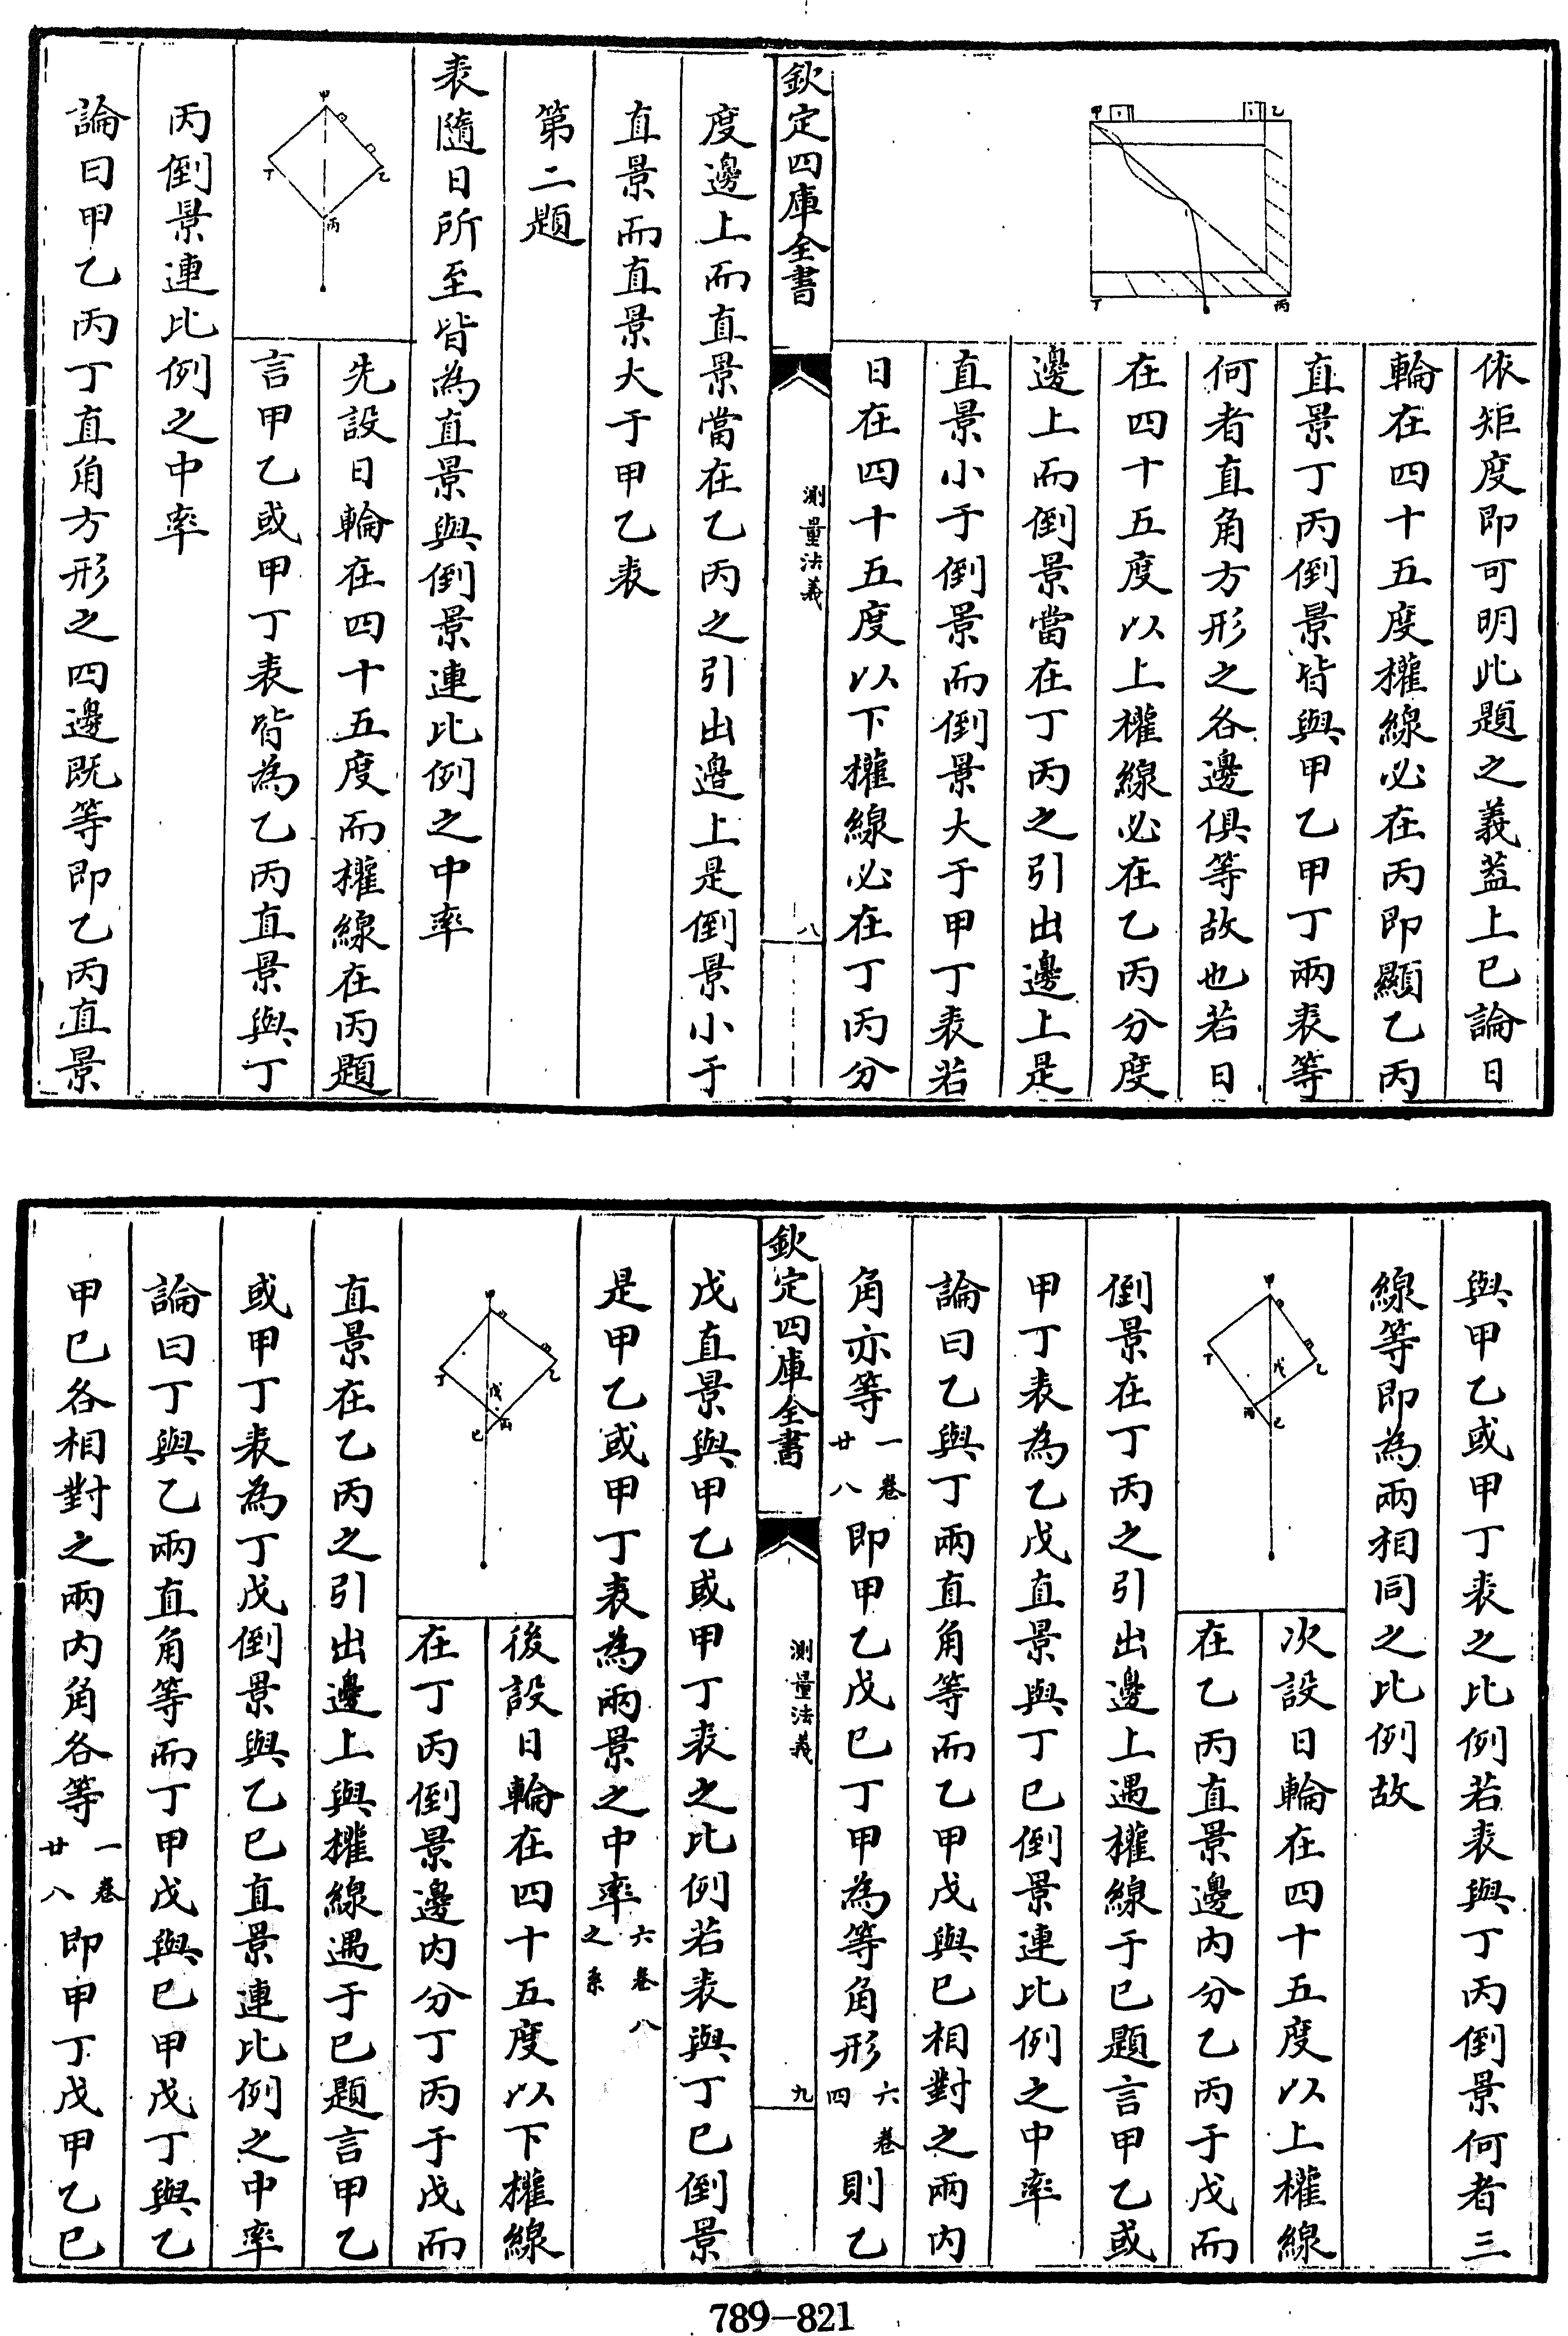 甲
乙
丁
丙
依矩度即可明此題之義蓋上已論日
輪在四十五度權線必在丙即顯乙丙
直景丁丙倒景皆與甲乙甲丁兩表等
何者直角方形之各邊俱等故也若日
在四十五度以上權線必在乙丙分度
邊上而倒景當在丁丙之引出邊上是
直景小于倒景而倒景大于甲丁表若
日在四十五度以下權線必在丁丙分
欽定四庫全書
測量法義
八
度邊上而直景當在乙丙之引出邊上是倒景小于
直景而直景大于甲乙表
第二題
表隨日所至皆為直景與倒景連比例之中率
甲
乙
丁
丙
先設日輪在四十五度而權線在丙題
言甲乙或甲丁表皆為乙丙直景與丁
丙倒景連比例之中率
論曰甲乙丙丁直角方形之四邊既等即乙丙直景
與甲乙或甲丁表之比例若表與丁丙倒景何者三
線等即為兩相同之比例故
甲
乙
丁
戊
丙
己
次設日輪在四十五度以上權線
在乙丙直景邊內分乙丙于戊而
倒景在丁丙之引出邊上遇權線于已題言甲乙或
甲丁表為乙戊直景與丁已倒景連比例之中率
論曰乙與丁兩直角等而乙甲戊與已相對之兩內
角亦等一卷廿八即甲乙戊已丁甲為等角形六卷四則乙
欽定四庫全書
測量法義
九
戊直景與甲乙或甲丁表之比例若表與丁已倒景
是甲乙或甲丁表為兩景之中率六卷八之系
甲
乙
丁
戊
丙
已
後設日輪在四十五度以下權線
在丁丙倒景邊內分丁丙于戊而
直景在乙丙之引出邊上與權線遇于已題言甲乙
或甲丁表為丁戊倒景與乙已直景連比例之中率
論曰丁與乙兩直角等而丁甲戊與已甲戊丁與乙
甲已各相對之兩內角各等一卷廿八即甲丁戊甲乙已
789-821